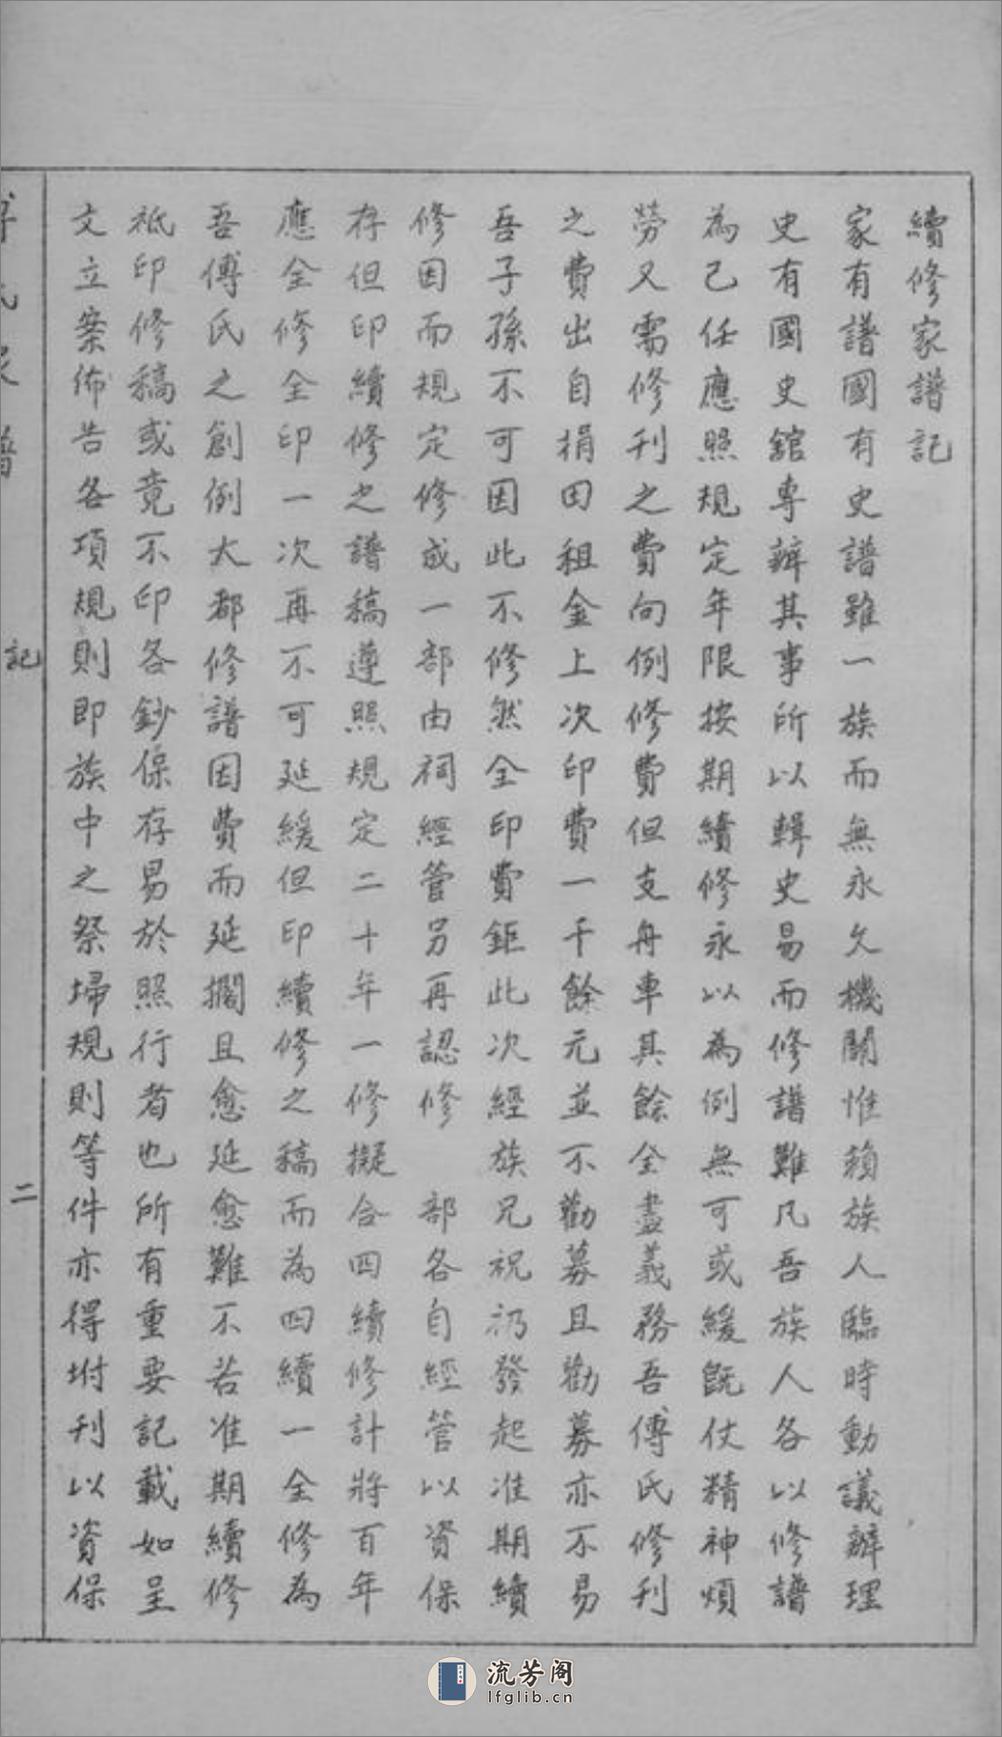 續修家譜記
家有譜國有史譜雖一族而無永久機關惟賴族人臨時動議辦理
史有國史館專辦其事所以輯史易而修譜難凡吾族人各以修譜
為己任應照規定年限按期續修永以為例無可或緩既仗精神煩
勞又需修刊之費向例修費但支舟車其餘全盡義務吾傅氏修刊
之費出自捐田租金上次印費一千餘元並不勸募且勸募亦不易
吾子孫不可因此不修然全印費鉅此次經族兄祝礽發起准期續
修因而規定修成一部由祠經管另再認修 部各自經管以資保
存但印續修之譜稿遵照規定二十年一修擬合四續修計將百年
應全修全印一次再不可延緩但印續修之稿而為四續一全修為
吾傅氏之創例大都修譜因費而延擱且愈延愈難不若准期續修
祇印修稿或竟不印各鈔保存易於照行者也所有重要記載如呈
文立案佈告各項規則即族中之祭埽規則等件亦得坿刊以資保
氏家譜
記
二
流芳阁
lfglib.cn